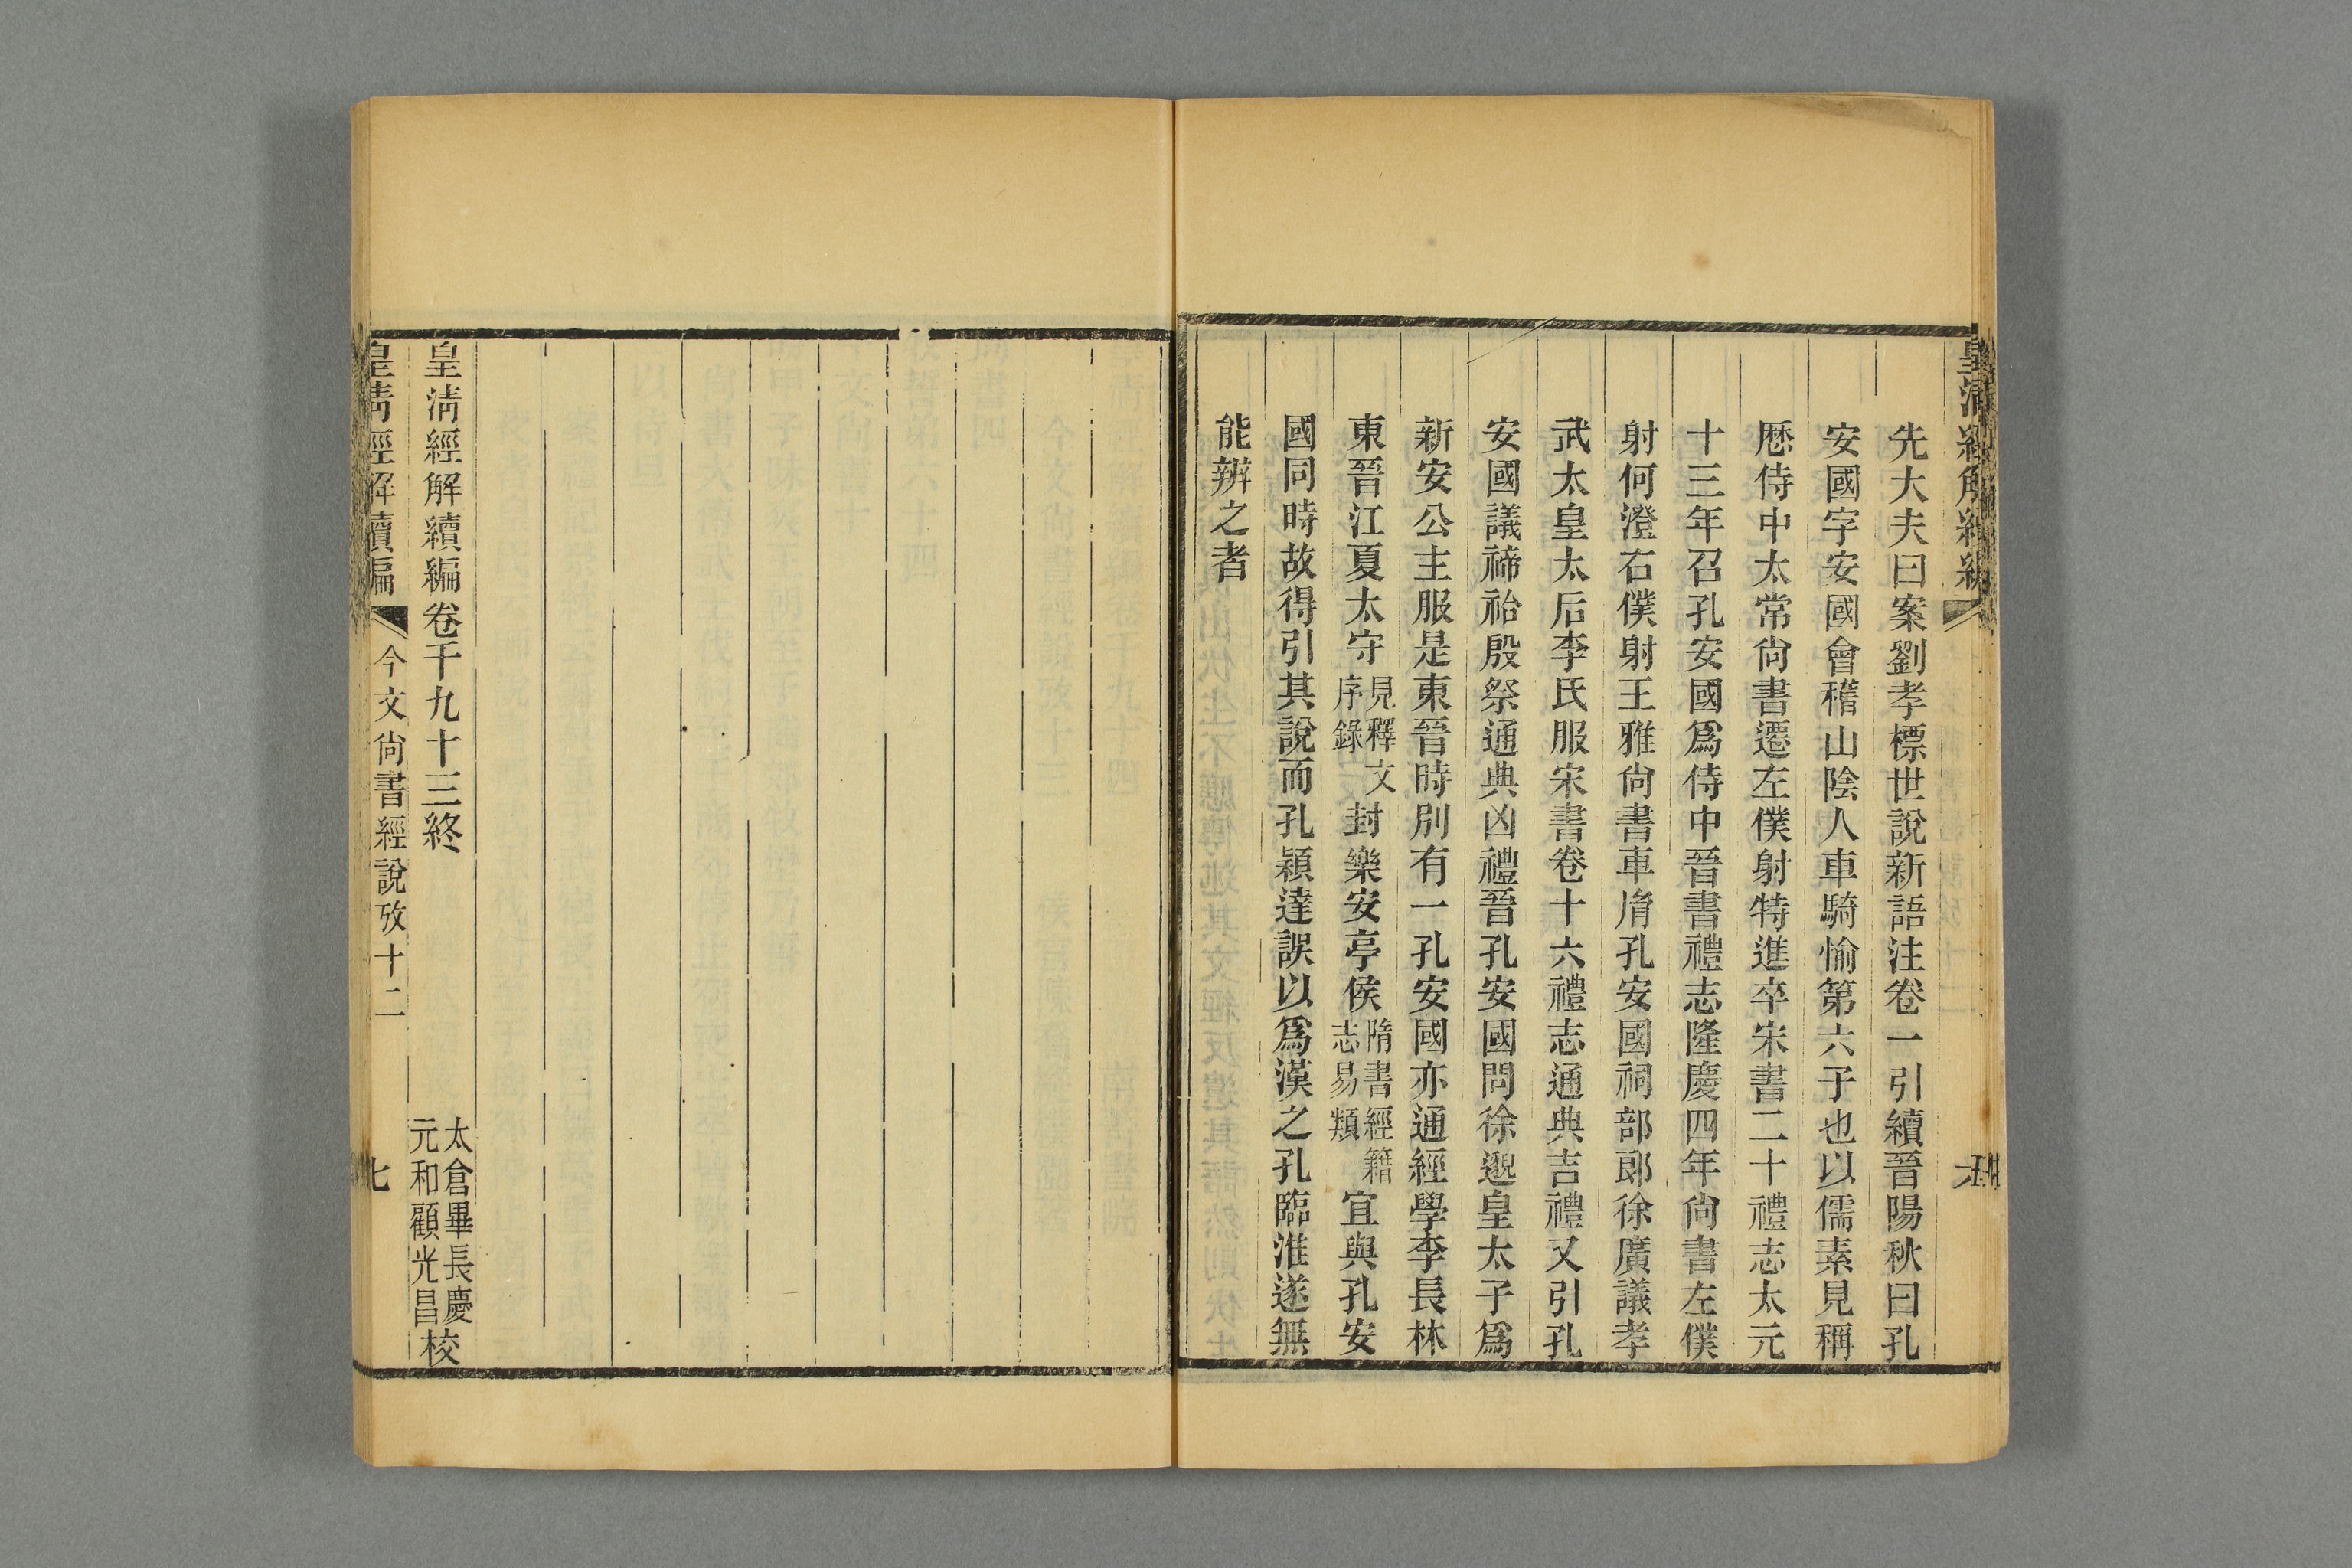 先大夫曰案劉孝標世說新語注卷一引續晉陽秋曰孔
安國字安國會稽山陰人車騎愉第六子也以儒素見稱
歷侍中太常尙書遷左僕射特進卒宋書二十禮志太元
十三年召孔安國爲侍中晉書禮志隆慶四年尙書左僕
射何澄右僕射王雅尙書車胤孔安國祠部郎徐廣議孝
武太皇太后李氏服宋書卷十六禮志通典吉禮又引孔
安國議禘祫殷祭通典凶禮晉孔安國問徐邈皇太子爲
新安公主服是東晉時別有一孔安國亦通經學李長林
東晉江夏太守見釋文序錄封樂安亭侯隋書經籍志易類宜與孔安
國同時故得引其說而孔穎達誤以爲漢之孔臨淮遂無
能辨之者
皇淸經解續編卷千九十三終
太倉畢長慶
元和顧光昌
校
皇淸經解續編
今文尙書經說攷十二
七